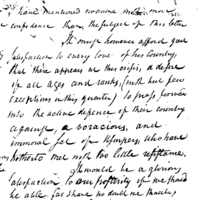 I have mentioned
confidence than the subject of this letter
It must however afford great
satisfaction to every lover of his Country,
that there appears at this crisis, a desire
of all ages and ranks, (with but few
exceptions in this quarter) to
into the active defence of their country
against, a voracious, and
immoral foe of who have
hitherto met with too little resistance.
It would be a glorious
satisfaction to of me should
be able